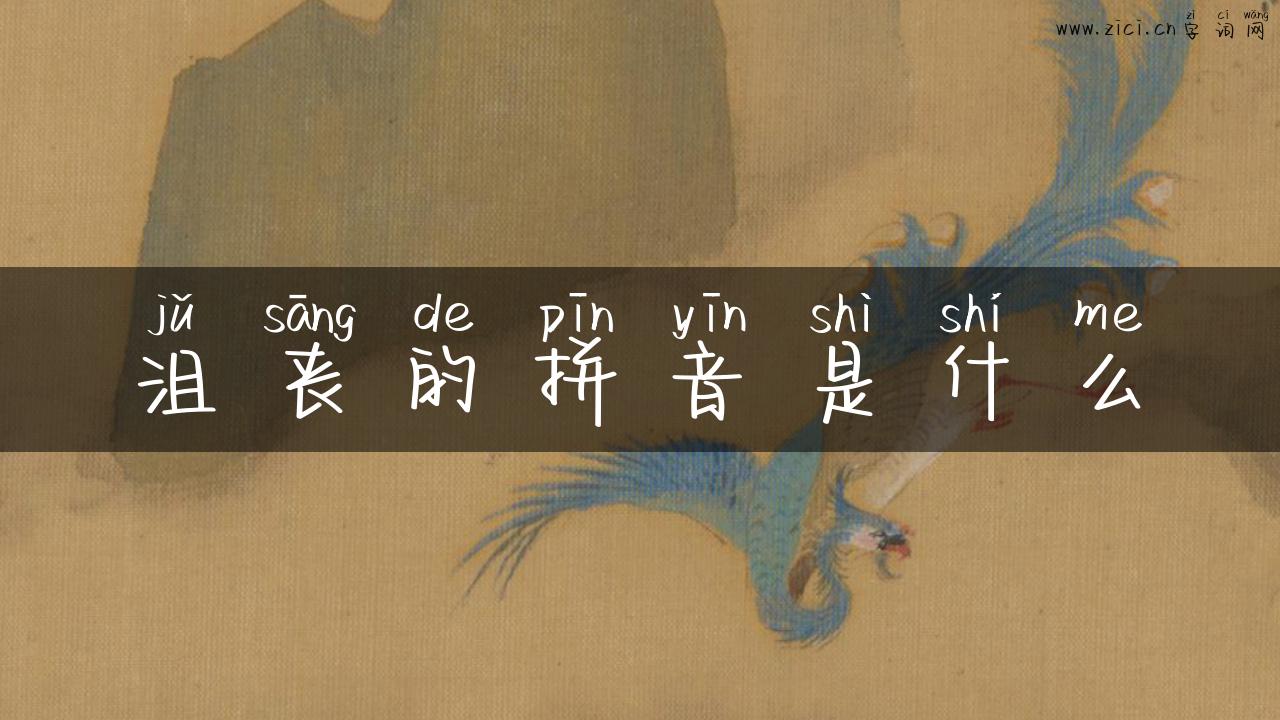 zì cí wǎng
www.zici.cn字词网
jǔ sāng de pīn yīn shì shí me
沮丧的拼音是什么